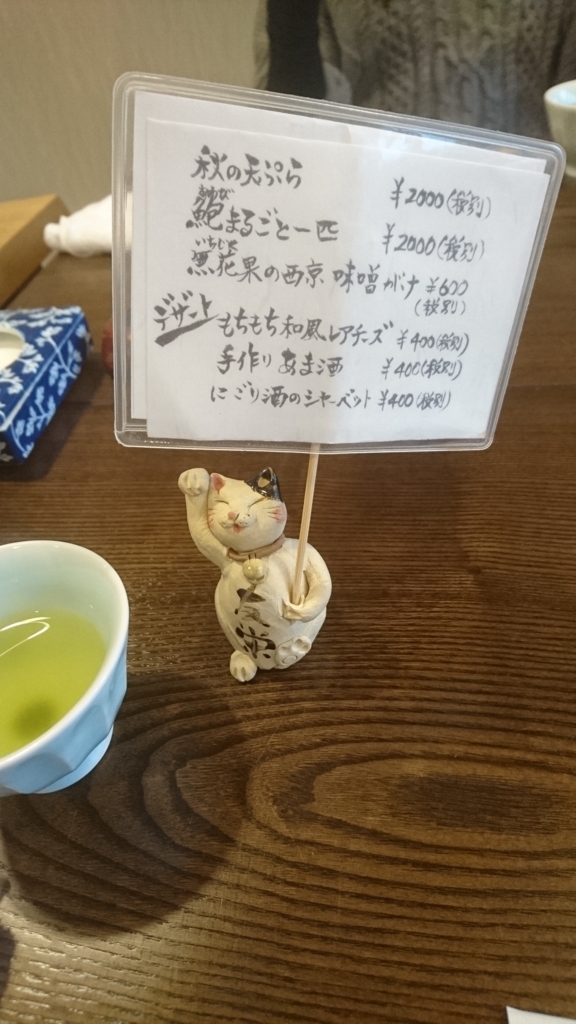 秋の天ぷら ¥2000(税別)
あわび
鮑まるごと一匹 ¥2000(税別)
いちじく
無花果の西京味噌がけ ¥600
(税別)
デザート もちもち和風レアチーズ ¥400(税別)
手作りあま酒 ¥400(税別)
にごり酒のシャーベット ¥400(税別)